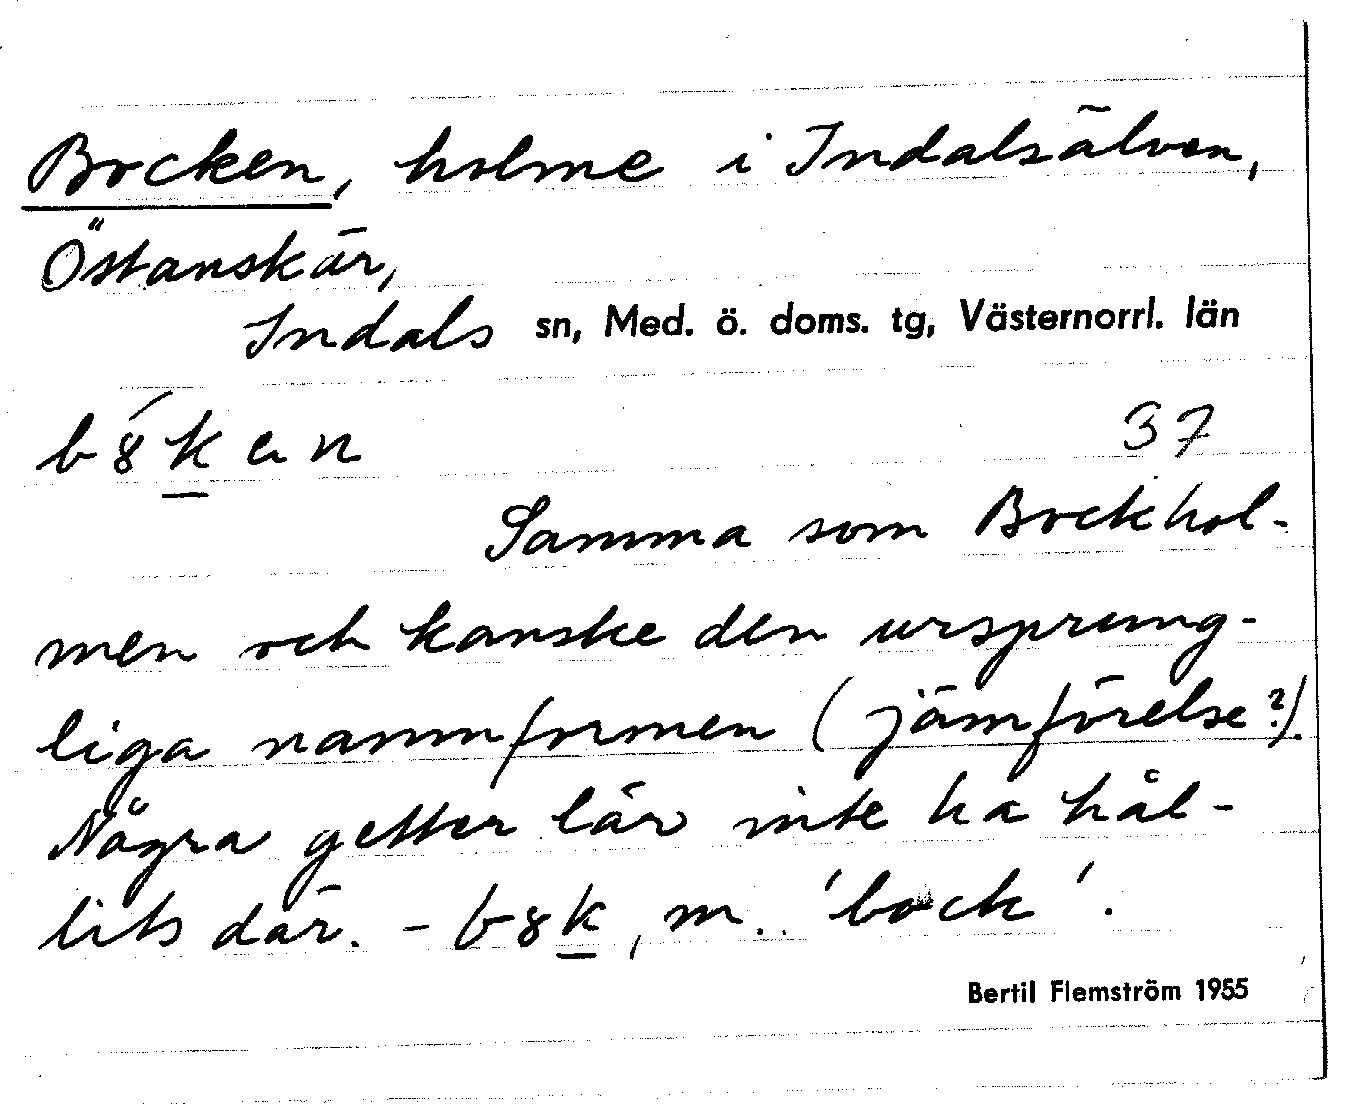 Bocken, holme i Indalsälven,
Östanskär,
Indals sn, Med. ö. doms. tg, Västernorrl. län
b8́ken 37
Samma som Bockhol-
men och kanske den ursprung-
liga namnformen (jämförelse?).
Några getter lär inte ha hål-
lits där. - b8k, m. 'bock'.
Bertil Flemström 1955